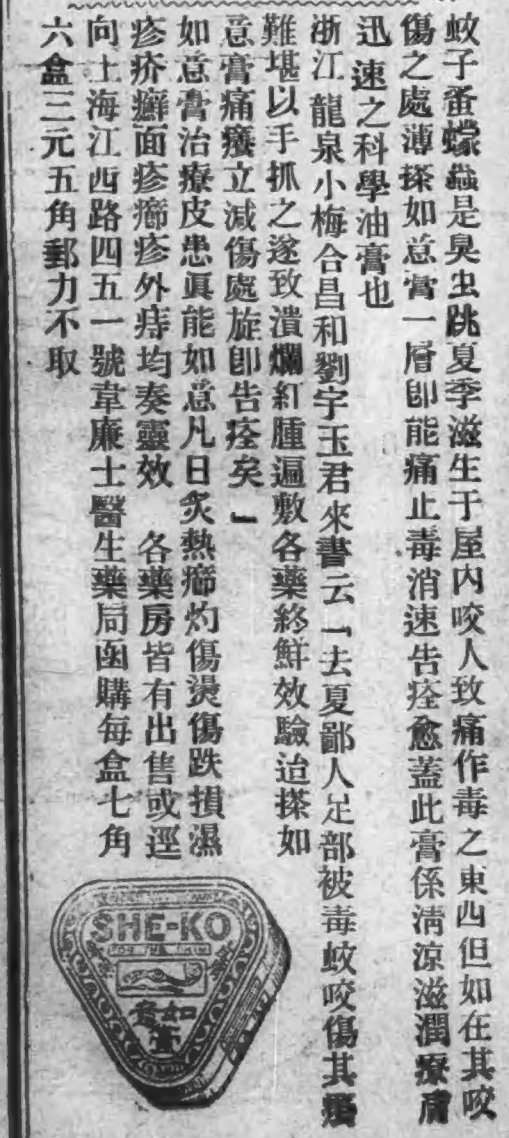 蚊子蚤蠓蝨是臭虫跳夏季滋生于屋内咬人致痛作毒之東西但如在其咬
傷之處薄搽如意膏一層卽能痛止毒消速告痊愈蓋此膏係淸涼滋潤療膚
迅速之科學油膏也
浙江龍泉小梅合昌和劉宇玉君來書云「去夏鄙人足部被毒蚊咬傷其癢
難堪以手抓之遂致潰爛紅腫遍敷各藥終鮮效驗迨搽如
意膏痛癢立減傷處旋卽告痊矣」
如意膏治療皮患眞能如意凡日炙熱癤灼傷燙傷跌損濕
疹疥癬面疹癤疹外痔均奏靈效 各藥房皆有出售或逕
向上海江西路四五一號韋廉士醫生藥局函購每盒七角
六盒三元五角郵力不取
SHE-KO
FOR THE SKIN
如意
膏